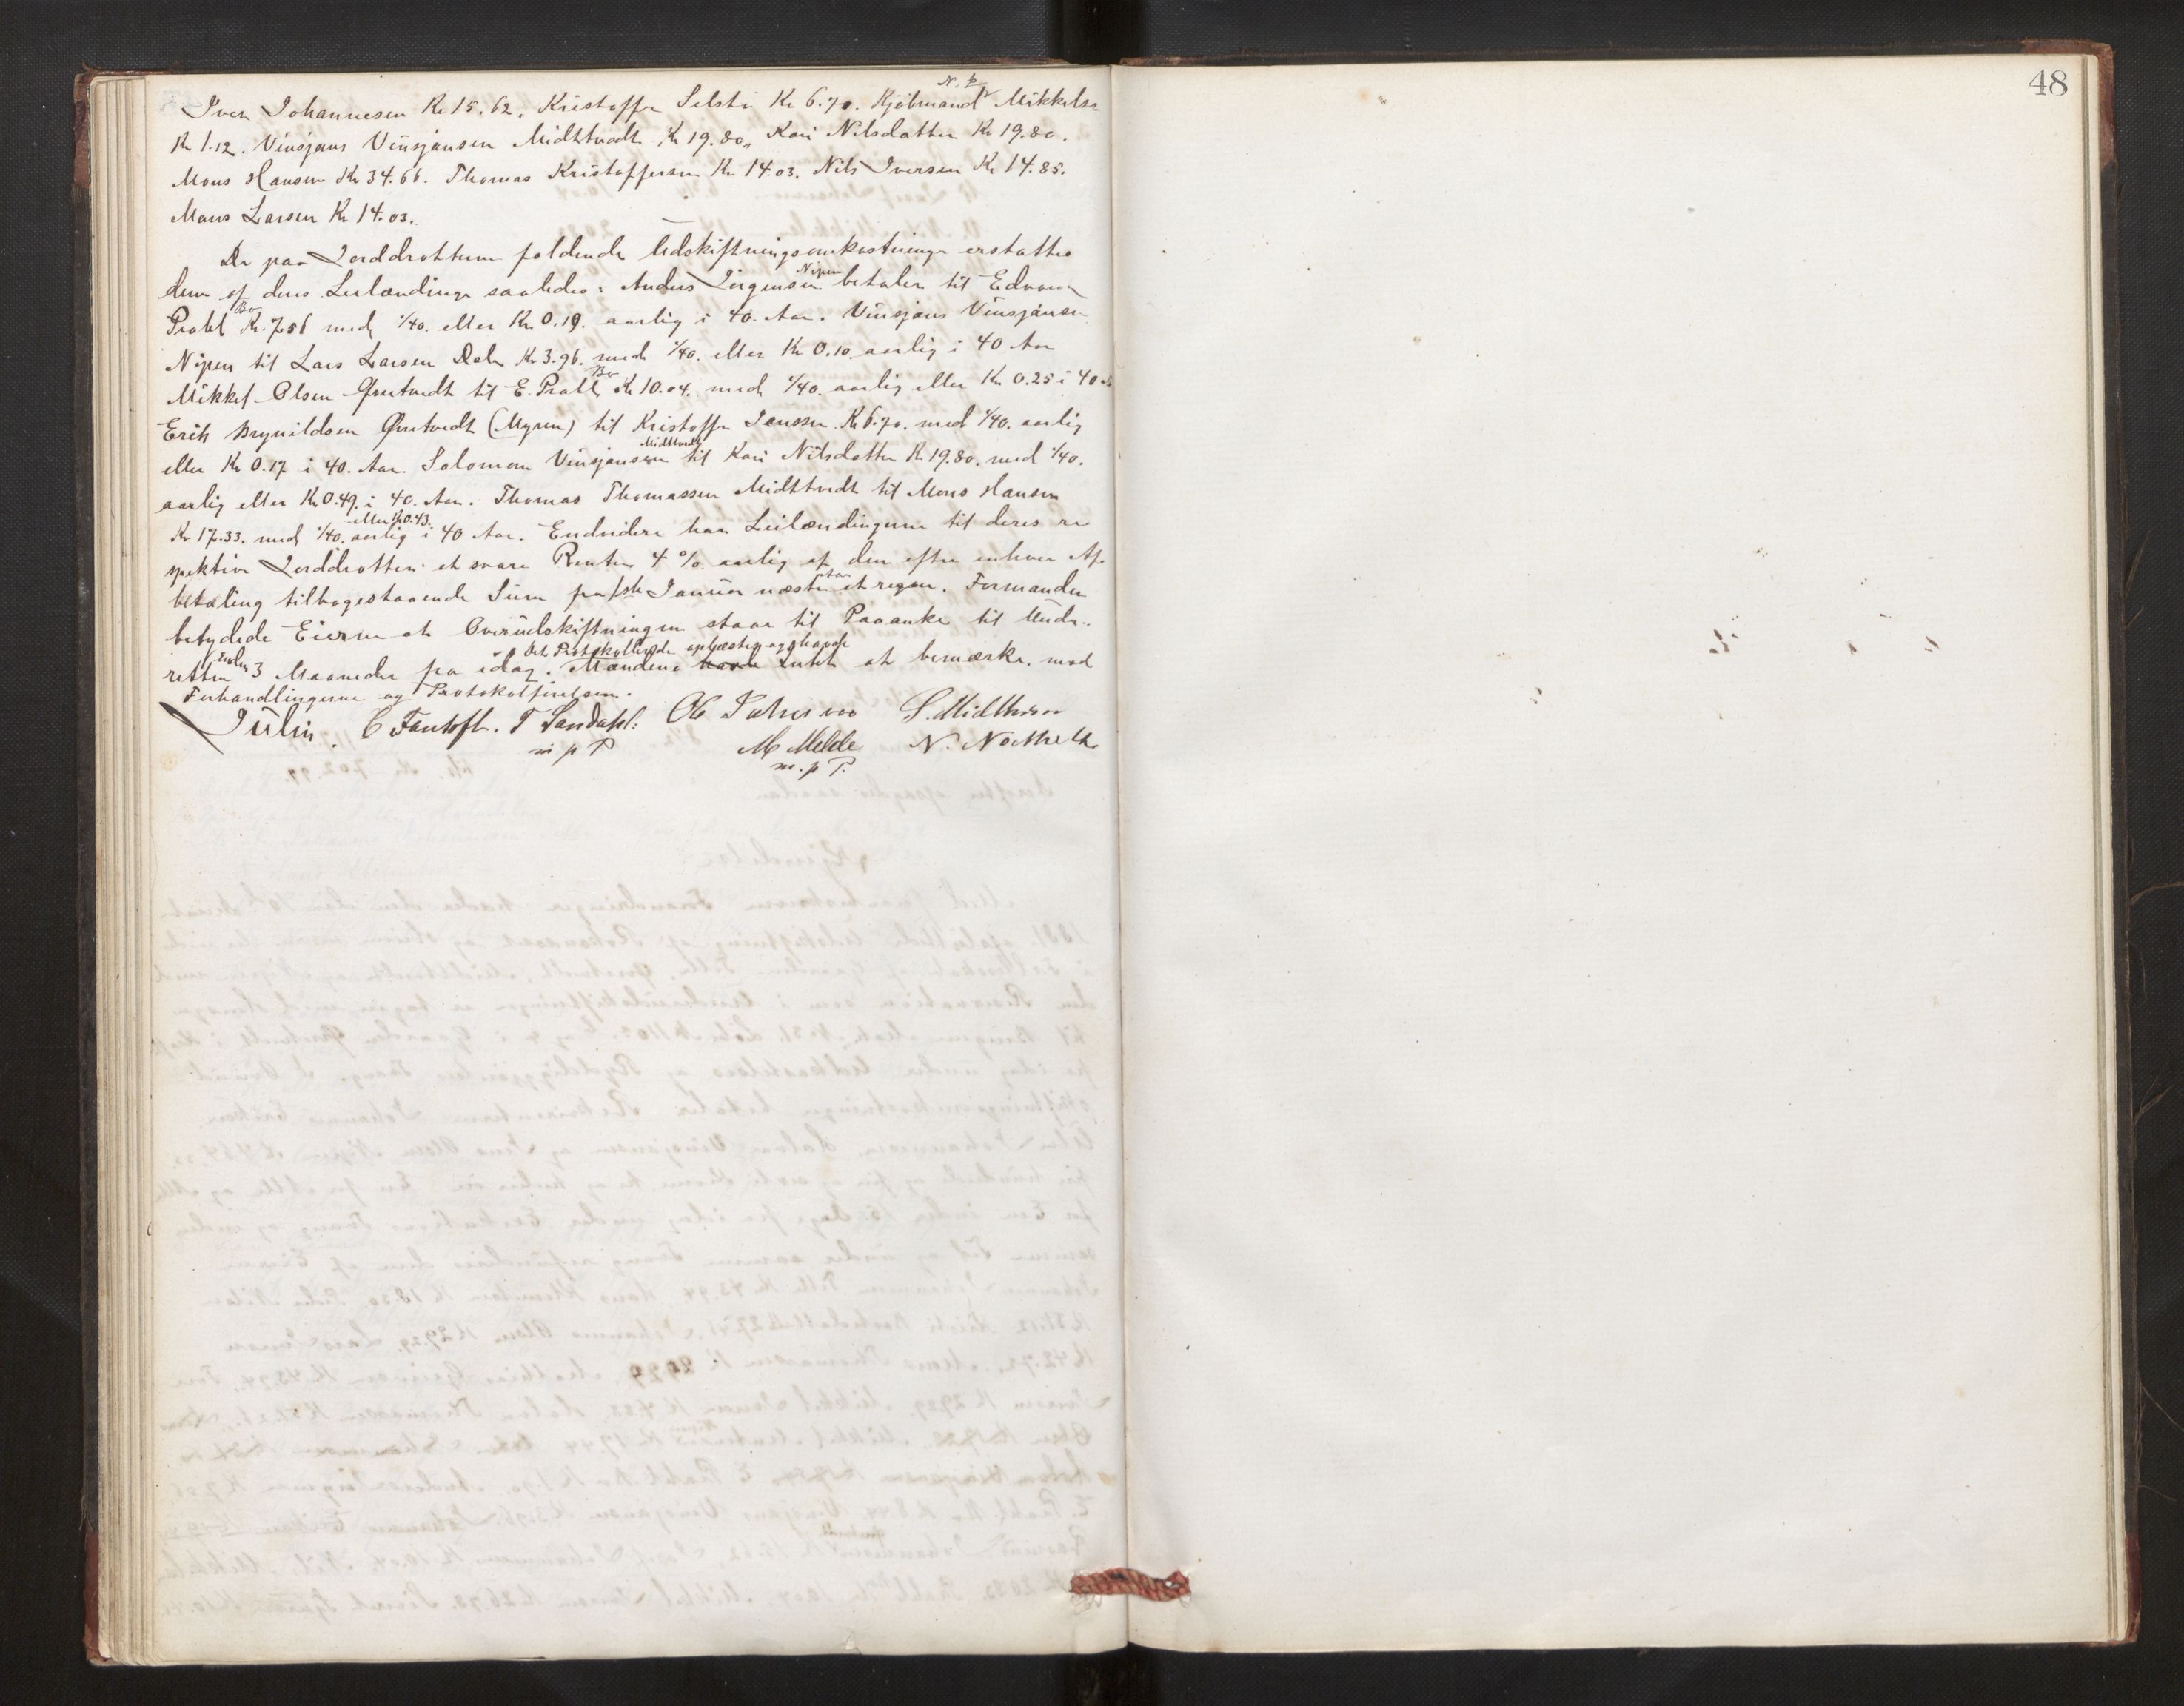 48
N. P.
Iver Johannesen Kr 15.62. Kristoffer Selstø Kr 6.70. Kjøbmand Mikkelsen
Kr 1.12. Vinsjans Vinsjansen Midttvedt Kr 19.80, Kari Nilsdatter Kr 19.80.
Mons Hansen Kr 34.66. Thomas Kristoffersen Kr 14.03. Nils Iversen Kr 14.85.
Mons Larsen Kr 14.03.
De paa Jorddrotterne faldende Udskiftningsomkostninger erstattes
dem af deres Leilændinge saaledes: Anders Jørgensen Nipen betaler til Edvard
Prahl Bo Kr. 7.56 med 1/40. eller Kr. 0.19. aarlig i 40. Aar. Vinsjans Vinsjansen
Nipen til Lars Larsen Dale Kr 3.96. med 1/40. eller Kr 0.10. aarlig i 40 Aar
Mikkel Olsen Øvretvedt til E. Prahl Bo Kr 10.04. med 1/40. aarlig eller Kr 0.25 i 40 Aar
Erik Brynildsen Øvretvedt (Myren) til Kristoffer Jensen Kr 6.70. med 1/40. aarlig
eller Kr 0.17 i 40. Aar. Salomon Vinsjansen Midttvedt til Kari Nilsdatter Kr 19.80. med 1/40.
aarlig eller Kr 0.49. i 40. Aar. Thomas Thomassen Midttvedt til Mons Hansen
Kr 17.33. med 1/40. aarlig eller Kr 0.43. i 40 Aar. Endvidere har Leilændingerne til deres re
spektive Jorddrotter at svare Renter 4 % aarlig af den efter enhver Af
betaling tilbagestaaende Sum fra 1ste Januar næste Aar at regne. Formanden
betydede Eierne at Overudskiftningen staar til Paaanke til Under-
retten inden 3 Maaneder fra idag. Det Protokollerede oplæstes og havde Mændene havde Intet at bemærke mod
Forhandlingerne og Protokolførelsen.
Julin. C Fantoft. T Sandahl: Ol Johnsen S. Midttveit
m p P M Melde N. Nottveit
m. p P.